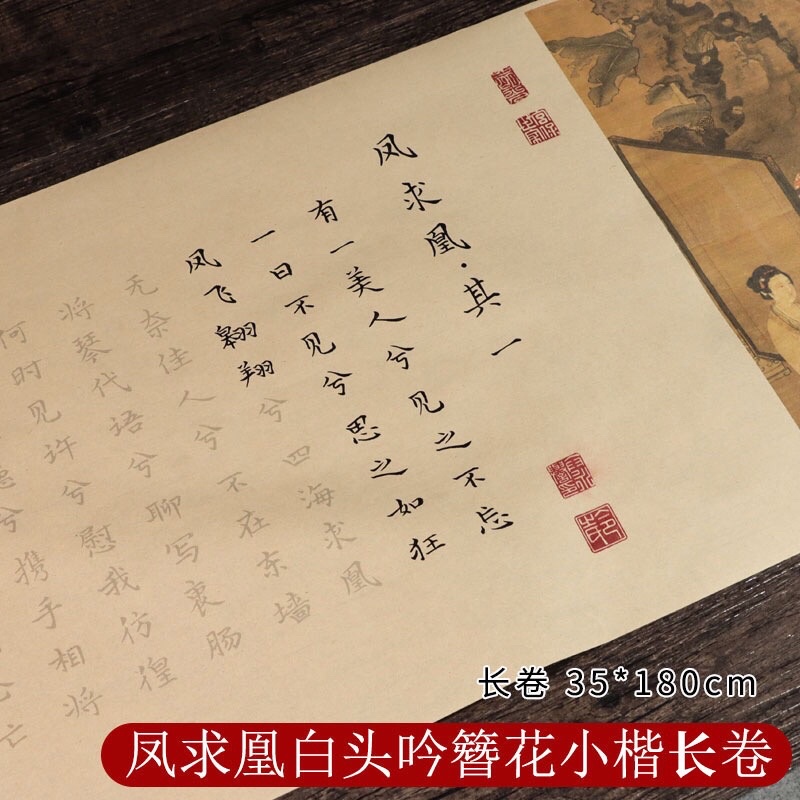 凤求凰·其一
有一美人兮见之不忘
一日不见兮思之如狂
凤飞翱翔兮四海求凰
无奈佳人兮不在东墙
将琴代语兮聊写衷肠
何时见许兮慰我彷徨
兮携手相将
亡
长卷 35*180cm
凤求凰白头吟簪花小楷长卷